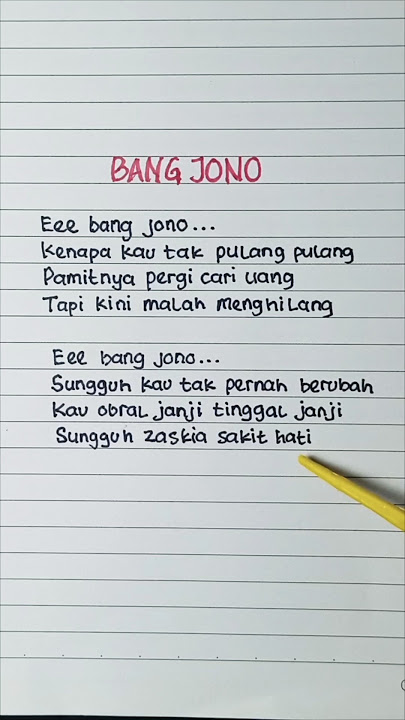 BANG JONO
Eee bang jono...
Kenapa kau tak pulang pulang
Pamitnya pergi cari uang
Tapi kini malah menghilang
Eee bang jono...
Sungguh kau tak pernah berubah
Kau obral janji tinggal janji
Sungguh zaskia sakit hati